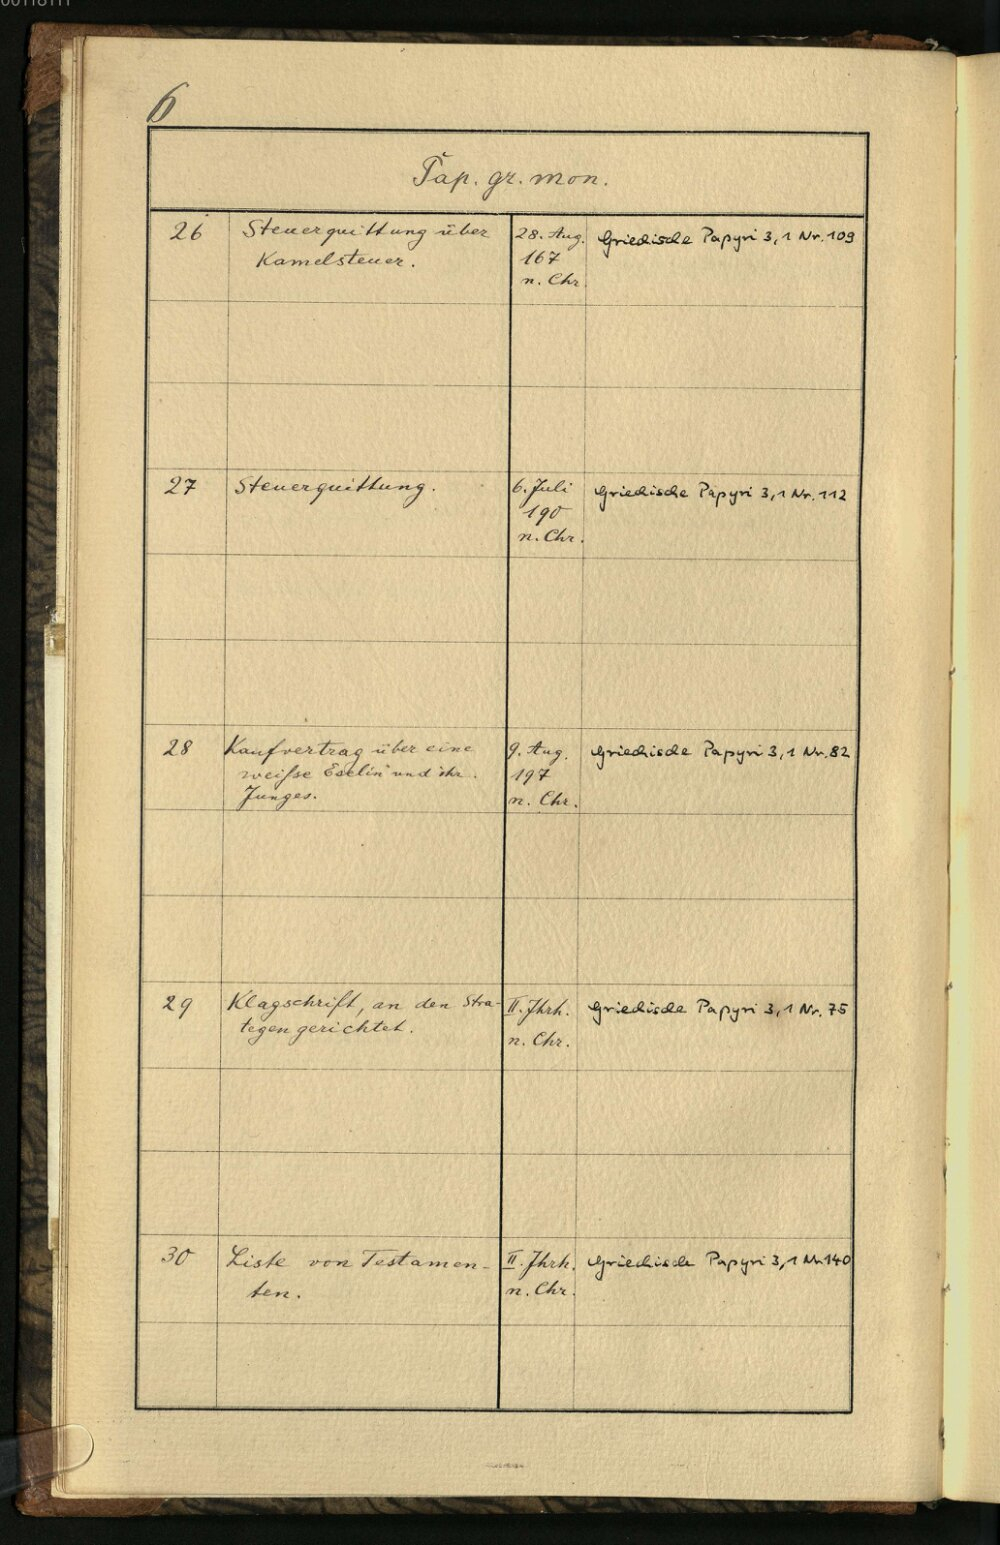 00118111
6
Pap. gr. mon.
26 Steuerquittung über 28. Aug. Griechische Papyri 3,1 Nr. 109
Kamelsteuer. 167
n. Chr.
27 Steuerquittung. 6. Juli Griechische Papyri 3,1 Nr. 112
190
n. Chr.
28 Kaufvertrag über eine 9. Aug. Griechische Papyri 3,1 Nr. 82
weiße Eselin und ihr 197
Junges. n. Chr.
29 Klagschrift, an den Stra- II. Jhrh. Griechische Papyri 3,1 Nr. 75
tegen gerichtet. n. Chr.
30 Liste von Testamen- II. Jhrh. Griechische Papyri 3,1 Nr. 140
ten. n. Chr.